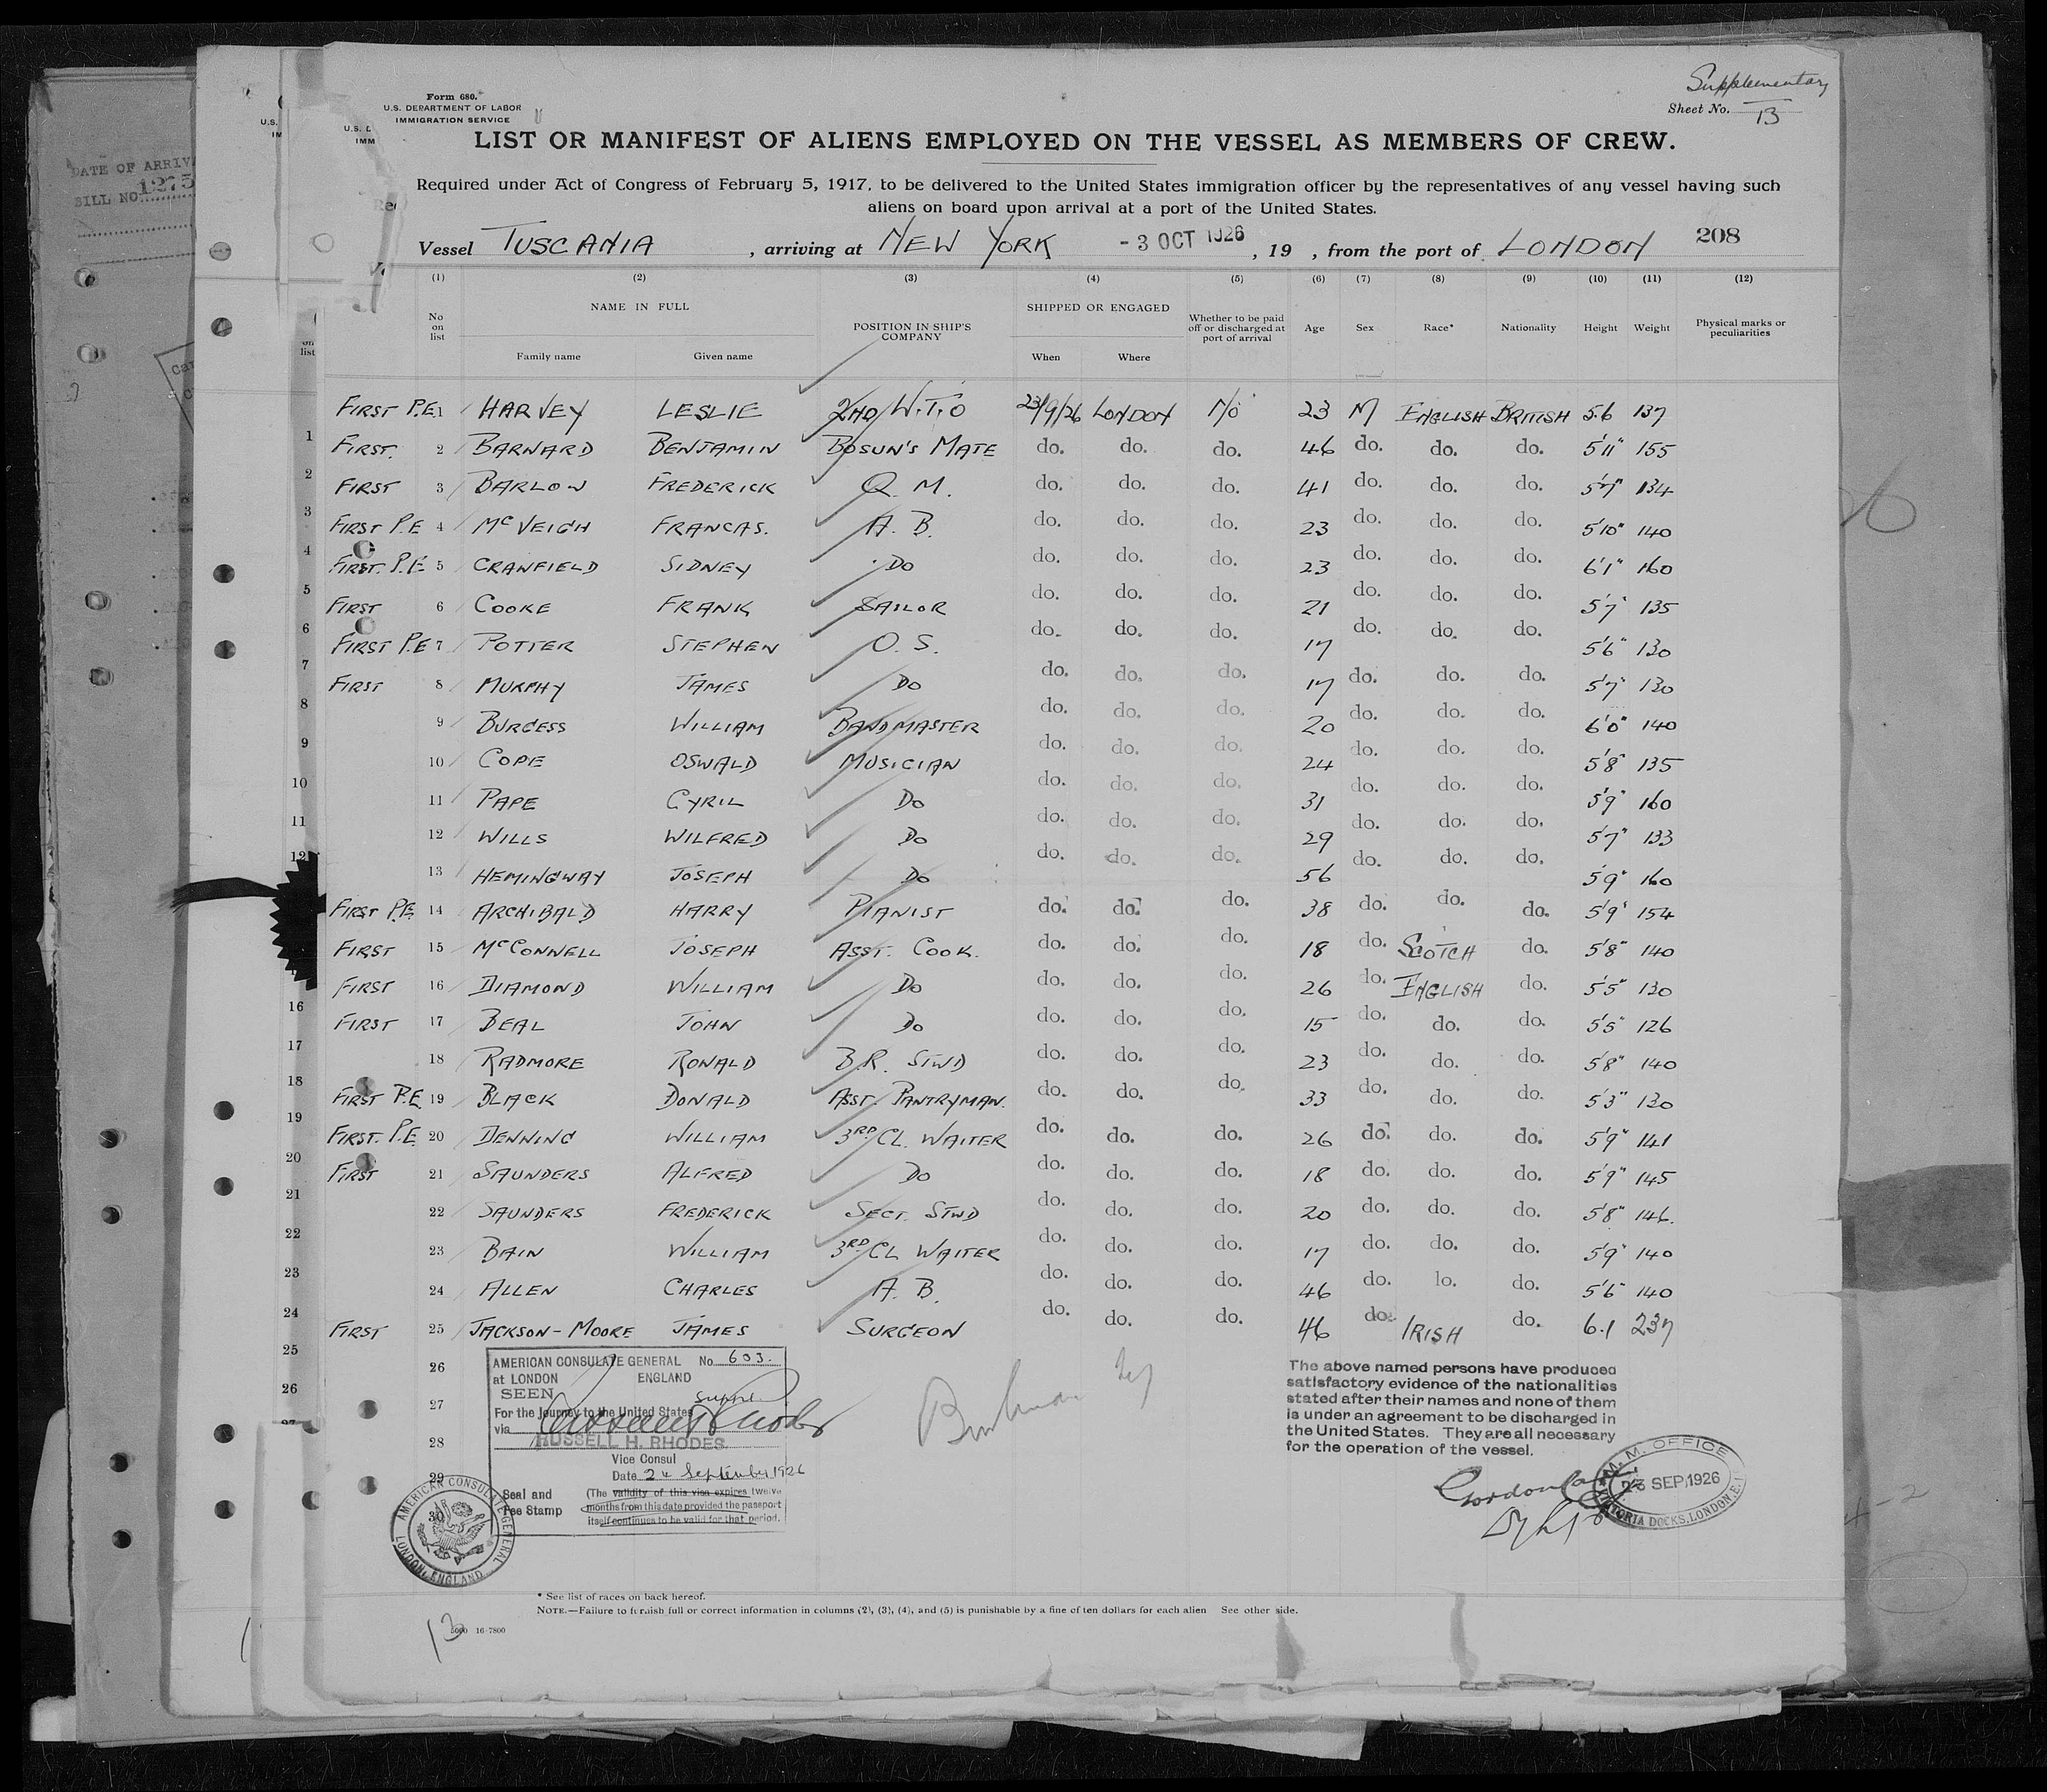 Supplementary
Form 680.
U.S. DEPARTMENT OF LABOR
IMMIGRATION SERVICE
Sheet No. 13
LIST OR MANIFEST OF ALIENS EMPLOYED ON THE VESSEL AS MEMBERS OF CREW.
Required under Act of Congress of February 5, 1917, to be delivered to the United States immigration officer by the representatives of any vessel having such
aliens on board upon arrival at a port of the United States.
DATE OF ARRIVA
BILL NO. 1275
Vessel TUSCANIA, arriving at NEW YORK - 3 OCT 1926, 19 , from the port of LONDON 208
(1) (2) (3) (4) (5) (6) (7) (8) (9) (10) (11) (12)
No on list NAME IN FULL Family name Given name POSITION IN SHIP'S COMPANY SHIPPED OR ENGAGED When Where Whether to be paid off or discharged at port of arrival Age Sex Race* Nationality Height Weight Physical marks or peculiarities
FIRST P.E. 1 HARVEY LESLIE 2ND W.T.O 23/9/26 LONDON N/O 23 M ENGLISH BRITISH 5.6 137
FIRST. 2 BARNARD BENJAMIN BOSUN'S MATE do. do. do. 46 do. do. do. 5'11" 155
FIRST 3 BARLOW FREDERICK Q. M. do. do. do. 41 do. do. do. 5'7" 134
FIRST P.E 4 McVEIGH FRANCAS. A. B. do. do. do. 23 do. do. do. 5'10" 140
FIRST. P.E 5 CRAWFIELD SIDNEY DO do. do. do. 23 do. do. do. 6'1" 160
FIRST 6 COOKE FRANK SAILOR do. do. do. 21 do. do. do. 5'7" 135
FIRST P.E 7 POTTER STEPHEN O. S. do. do. do. 17 do. do. do. 5'6" 130
FIRST 8 MURPHY JAMES DO do. do. do. 17 do. do. do. 5'7" 130
9 BURGESS WILLIAM BANDMASTER do. do. do. 20 do. do. do. 6'0" 140
10 COPE OSWALD MUSICIAN do. do. do. 24 do. do. do. 5'8" 135
11 PAPE CYRIL DO do. do. do. 31 do. do. do. 5'9" 160
12 WILLS WILFRED DO do. do. do. 29 do. do. do. 5'7" 133
13 HEMINGWAY JOSEPH DO do. do. do. 56 do. do. do. 5'9" 160
FIRST P.E. 14 ARCHIBALD HARRY PIANIST do. do. do. 38 do. do. do. 5'9" 154
FIRST 15 McCONNELL JOSEPH ASST. COOK. do. do. do. 18 do. SCOTCH do. 5'8" 140
FIRST 16 DIAMOND WILLIAM DO do. do. do. 26 do. ENGLISH do. 5'5" 130
FIRST 17 BEAL JOHN DO do. do. do. 15 do. do. do. 5'5" 126
18 RADMORE RONALD B.R. STWD do. do. do. 23 do. do. do. 5'8" 140
FIRST P.E. 19 BLACK DONALD ASST. PANTRYMAN. do. do. do. 33 do. do. do. 5'3" 130
FIRST. P.E. 20 DENNING WILLIAM 3RD CL. WAITER do. do. do. 26 do. do. do. 5'9" 141
FIRST 21 SAUNDERS ALFRED DO do. do. do. 18 do. do. do. 5'9" 145
22 SAUNDERS FREDERICK SECT. STWD do. do. do. 20 do. do. do. 5'8" 146.
23 BAIN WILLIAM 3RD CL WAITER do. do. do. 17 do. do. do. 5'9" 140
24 ALLEN CHARLES A. B. do. do. do. 46 do. lo. do. 5'6" 140
FIRST 25 JACKSON-MOORE JAMES SURGEON do. do. do. 46 do. IRISH do. 6.1 237
26
27
28
29
30
AMERICAN CONSULATE GENERAL No. 603.
at LONDON ENGLAND
SEEN Suppl.
For the Journey to the United States
via
RUSSELL H. RHODES
Vice Consul
Date 24 September 1926
Seal and Fee Stamp
(The validity of this visa expires twelve
months from this date provided the passport
itself continues to be valid for that period.
AMERICAN CONSULATE GENERAL LONDON, ENGLAND
The above named persons have produced
satisfactory evidence of the nationalities
stated after their names and none of them
is under an agreement to be discharged in
the United States. They are all necessary
for the operation of the vessel.
M. M. OFFICE
23 SEP 1926
VICTORIA DOCKS, LONDON, E.
* See list of races on back hereof.
NOTE.—Failure to furnish full or correct information in columns (2), (3), (4), and (5) is punishable by a fine of ten dollars for each alien See other side.
16-7800
13